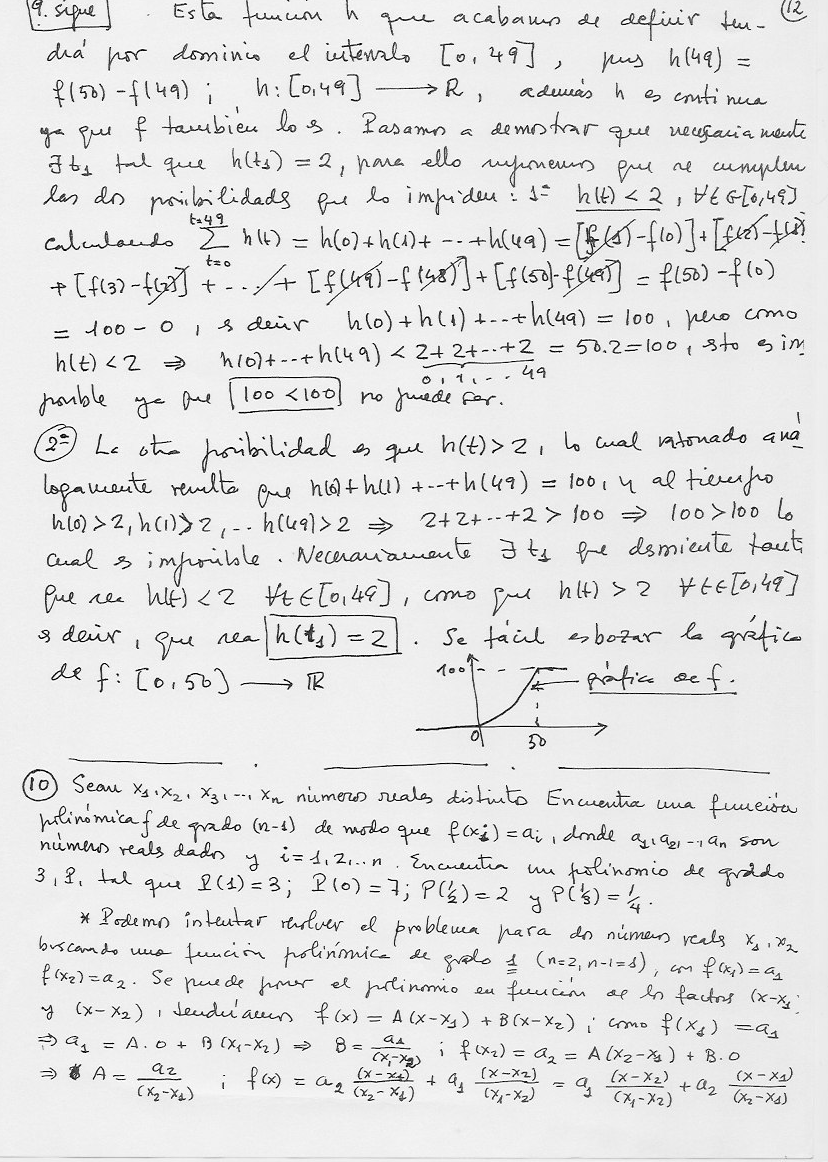 9. sigue] Esta función h que acabamos de definir ten- (12
drá por dominio el intervalo [0, 49], pues h(49) =
f(50) - f(49) ; h: [0,49] ⟶ R, además h es continua
ya que f también lo es. Pasamos a demostrar que necesariamente
∃ t₁ tal que h(t₁) = 2, para ello suponemos que se cumplen
las dos posibilidades que lo impiden : 1ª h(t) < 2, ∀t∈[0,49]
calculando ∑ t=0 t=49 h(t) = h(0)+h(1)+ ··· +h(49) = [f(1)-f(0)]+[f(2)-f(1)]
+ [f(3)-f(2)] + ... + [f(49)-f(48)] + [f(50)-f(49)] = f(50) - f(0)
= 100 - 0, es decir h(0)+h(1)+...+h(49) = 100, pero como
h(t) < 2 ⇒ h(0)+...+h(49) < 2+2+...+2 = 50.2=100, esto es im
0, 1, ... 49
posible ya que 100 < 100 no puede ser.
2ª La otra posibilidad es que h(t) > 2, lo cual razonado aná
logamente resulta que h(0)+h(1) +...+h(49) = 100, y al tiempo
h(0) > 2, h(1) > 2, ... h(49) > 2 ⇒ 2+2+...+2 > 100 ⇒ 100 > 100 lo
cual es imposible. Necesariamente ∃ t₁ que desmiente tanto
que sea h(t) < 2 ∀t∈[0,49], como que h(t) > 2 ∀t∈[0,49]
es decir, que sea h(t₁) = 2. Se fácil esbozar la gráfica
de f: [0,50] ⟶ ℝ
100 gráfica de f.
0 50
10 Sean x₁, x₂, x₃, ..., xn números reales distinto Encuentra una función
polinómica f de grado (n-1) de modo que f(xi) = ai, donde a₁, a₂, .., an son
números reales dados y i = 1, 2, ... n. Encuentra un polinomio de grado
3, P, tal que P(1) = 3; P(0) = 7; P(1/2) = 2 y P(1/3) = 1/4.
* Podemos intentar resolver el problema para dos números reales x₁, x₂
buscando una función polinómica de grado 1 (n=2, n-1=1), con f(x₁) = a₁
f(x₂) = a₂. Se puede poner el polinomio en función de los factores (x-x₁
y (x-x₂), tendríamos f(x) = A(x-x₁) + B(x-x₂) ; como f(x₁) = a₁
⇒ a₁ = A.0 + B(x₁-x₂) ⇒ B = a₁/(x₁-x₂) ; f(x₂) = a₂ = A(x₂-x₁) + B.0
⇒ A = a₂/(x₂-x₁) ; f(x) = a₂ (x-x₁)/(x₂-x₁) + a₁ (x-x₂)/(x₁-x₂) = a₁ (x-x₂)/(x₁-x₂) + a₂ (x-x₁)/(x₂-x₁)